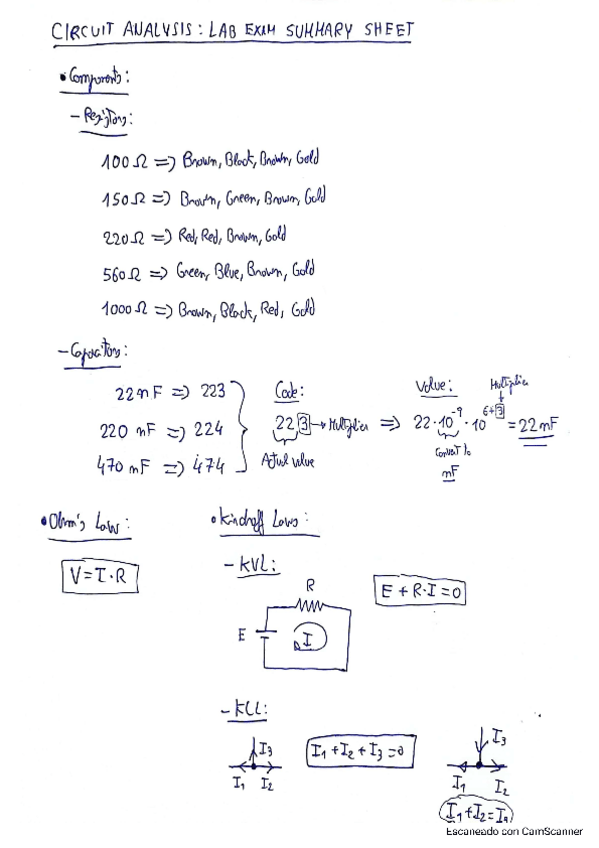 CIRCUIT ANALYSIS: LAB EXAM SUMMARY SHEET
• Components:
- Resistors:
100 Ω => Brown, Black, Brown, Gold
150 Ω => Brown, Green, Brown, Gold
220 Ω => Red, Red, Brown, Gold
560 Ω => Green, Blue, Brown, Gold
1000 Ω => Brown, Black, Red, Gold
- Capacitors:
22 nF => 223
220 nF => 224
470 nF => 474
Code:
22 3 → Multiplier =>
Actual value
Value:
Multiplier
22·10⁻⁹·10⁶⁺³ = 22 nF
Convert to
nF
• Ohm's Law:
V = I·R
• Kirchoff Laws:
- KVL:
R
E
I
E + R·I = 0
- KCL:
I₃
I₁ I₂
I₁ + I₂ + I₃ = 0
I₃
I₁ I₂
I₁ + I₂ = I₃
Escaneado con CamScanner